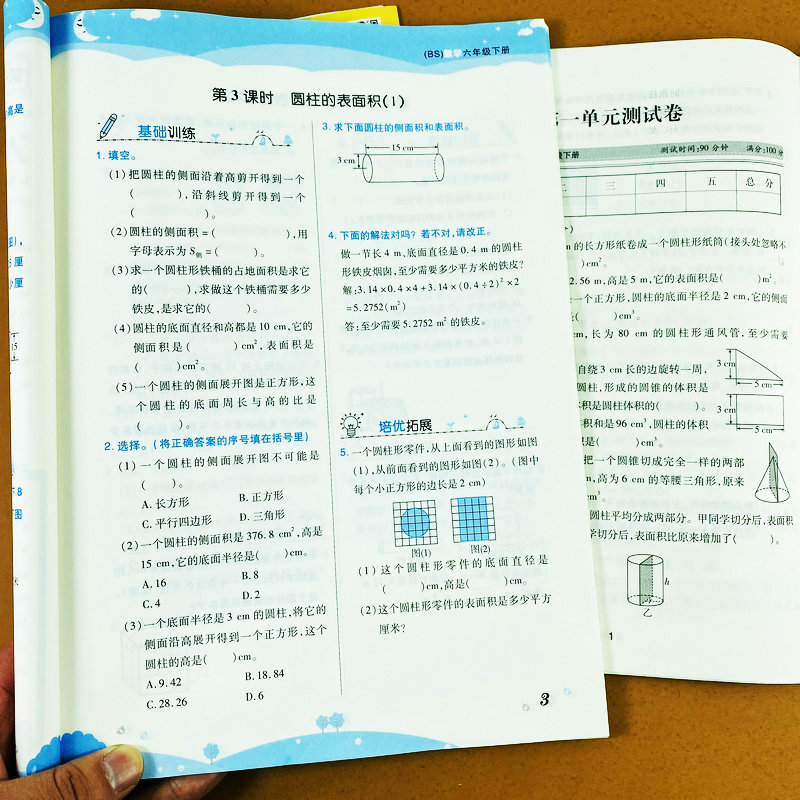 (BS)数学六年级下册
第3课时 圆柱的表面积(1)
基础训练
1. 填空。
(1)把圆柱的侧面沿着高剪开得到一个
( ),沿斜线剪开得到一个
( )。
(2)圆柱的侧面积=( ),用
字母表示为S侧=( )。
(3)求一个圆柱形铁桶的占地面积是求它
的( ),求做这个铁桶需要多少
铁皮,是求它的( )。
(4)圆柱的底面直径和高都是10 cm,它的
侧面积是( )cm²,表面积是
( )cm²。
(5)一个圆柱的侧面展开图是正方形,这
个圆柱的底面周长与高的比是
( )。
2. 选择。(将正确答案的序号填在括号里)
(1)一个圆柱的侧面展开图不可能是
( )。
A. 长方形 B. 正方形
C. 平行四边形 D. 三角形
(2)一个圆柱的侧面积是376.8 cm²,高是
15 cm,它的底面半径是( )cm。
A. 16 B. 8
C. 4 D. 2
(3)一个底面半径是3 cm的圆柱,将它的
侧面沿高展开得到一个正方形,这个
圆柱的高是( )cm。
A. 9.42 B. 18.84
C. 28.26 D. 6
3. 求下面圆柱的侧面积和表面积。
15 cm
3 cm
4. 下面的解法对吗?若不对,请改正。
做一节长4 m,底面直径是0.4 m的圆柱
形铁皮烟囱,至少需要多少平方米的铁皮?
解:3.14×0.4×4+3.14×(0.4÷2)²×2
=5.2752(m²)
答:至少需要5.2752 m²的铁皮。
培优拓展
5. 一个圆柱形零件,从上面看到的图形如图
(1),从前面看到的图形如图(2)。(图中
每个小正方形的边长是2 cm)
图(1) 图(2)
(1)这个圆柱形零件的底面直径是
( )cm,高是( )cm。
(2)这个圆柱形零件的表面积是多少平方
厘米?
3
一单元测试卷
下册 测试时间:90分钟 满分:100分
三 四 五 总分
m的长方形纸卷成一个圆柱形纸筒(接头处忽略不
)cm²。
2.56 m,高是5 m,它的表面积是( )m²。
一个正方形,圆柱的底面半径是2 cm,它的侧面
)cm³。
cm,长为80 cm的圆柱形通风管,至少需要
自绕3 cm长的边旋转一周,
圆柱,形成的圆锥的体积是
积是圆柱体积的( )。
积和是96 cm³,圆柱的体积
3 cm
5 cm
3 cm
5 cm
把一个圆锥切成完全一样的两部
m,高为6 cm的等腰三角形,原来
cm³。
圆柱平均分成两部分。甲同学切分后,表面积
学切分后,表面积比原来增加了( )。
h
乙
1